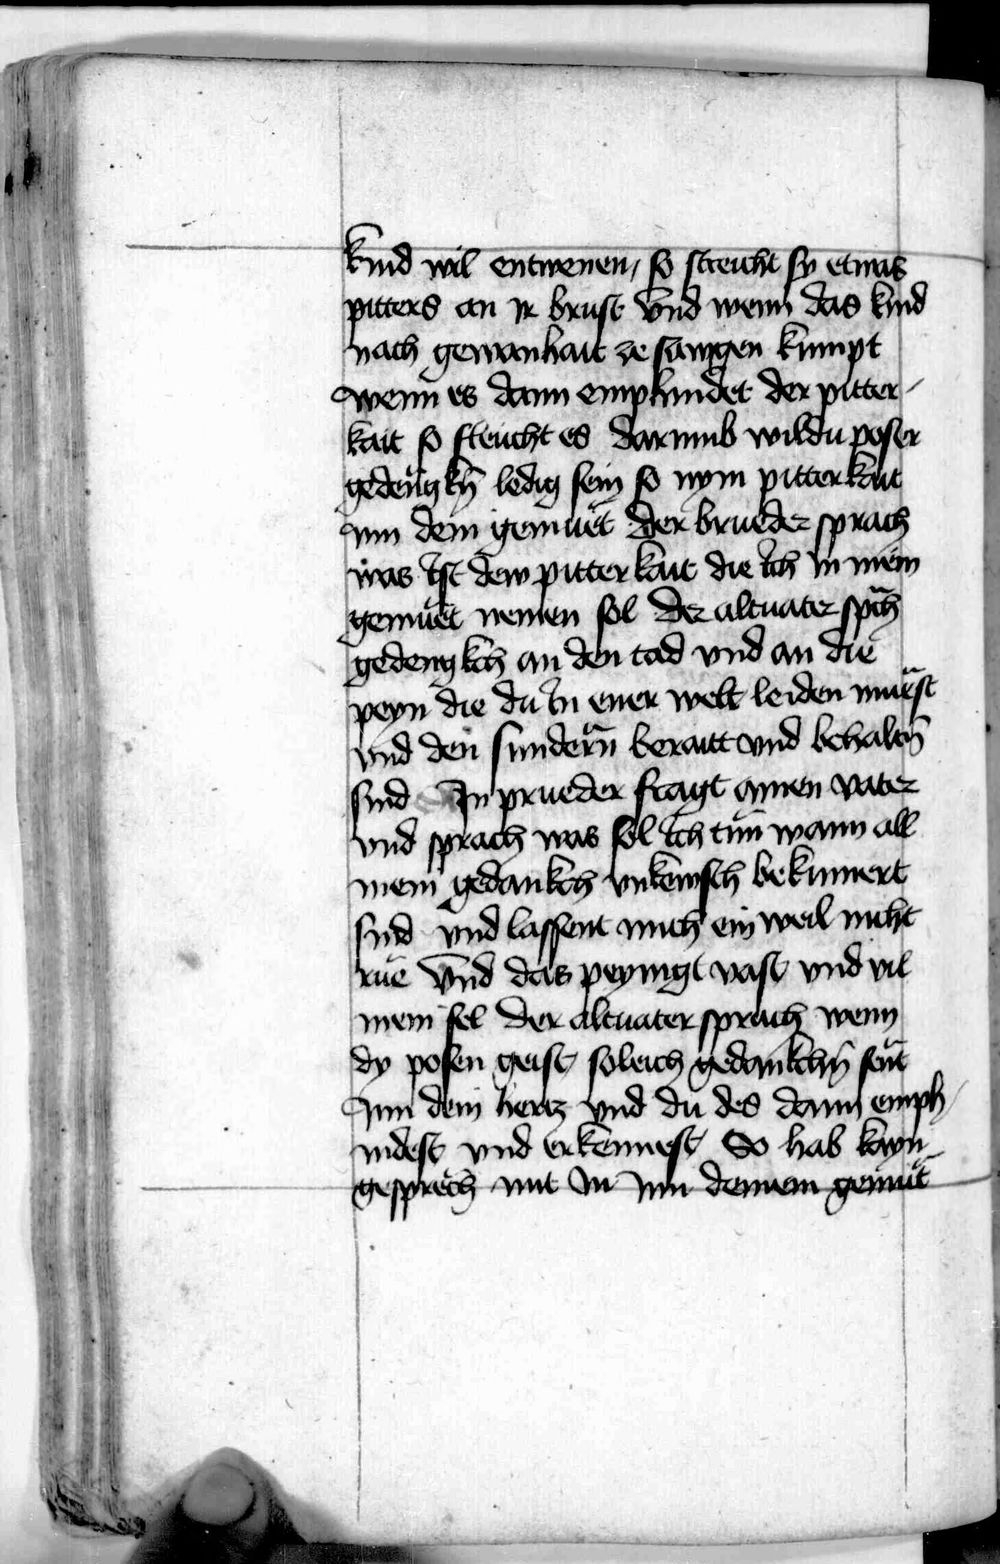 kind wil entwenen / so streicht sy etwas
pitters an ir brust Vnd wenn das kind
nach gewanhait ze saugen kumpt
wenn es dann emphindet der pitter-
kait so fleucht es Darumb wildu poser
gedengkh̄ ledig sein so nym pitterkait
inn dein gemuet Der brueder sprach
was ist dew pitterkait die ich in mein
gemuet nemen sol Der altuater sp̄ch
gedengkch an den tod vnd an die
peyn die du in ener welt leiden muest
vnd den sundern beraitt vnd behaltn̄
sind Ain prueder fragt ainen vater
vnd sprach was sol ich tun wann all
mein gedankch vnkewsch bekumert
sind vnd lassent mich ein weil nicht
rue Vnd das peynigt vast vnd vil
mein sel Der altuater sprach wenn
dy posen geist soleich gedankchn̄ sent
Inn dein hertz vnd du des dann emph-
indest vnd erkennest So hab kayn
gesprech mit in inn deinem gemut